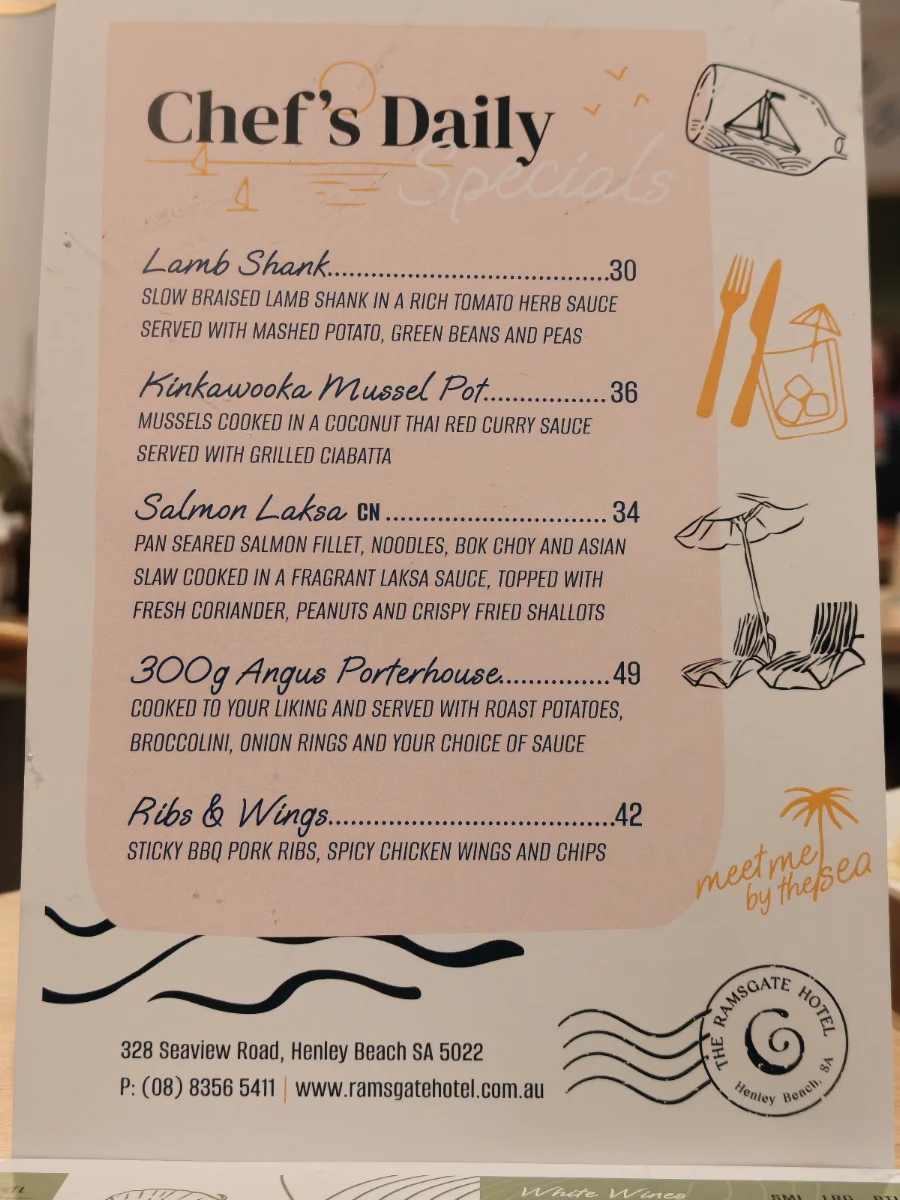 Chef's Daily
Specials
Lamb Shank....................................30
SLOW BRAISED LAMB SHANK IN A RICH TOMATO HERB SAUCE
SERVED WITH MASHED POTATO, GREEN BEANS AND PEAS
Kinkawooka Mussel Pot................36
MUSSELS COOKED IN A COCONUT THAI RED CURRY SAUCE
SERVED WITH GRILLED CIABATTA
Salmon Laksa CN ............................. 34
PAN SEARED SALMON FILLET, NOODLES, BOK CHOY AND ASIAN
SLAW COOKED IN A FRAGRANT LAKSA SAUCE, TOPPED WITH
FRESH CORIANDER, PEANUTS AND CRISPY FRIED SHALLOTS
300g Angus Porterhouse...............49
COOKED TO YOUR LIKING AND SERVED WITH ROAST POTATOES,
BROCCOLINI, ONION RINGS AND YOUR CHOICE OF SAUCE
Ribs & Wings.....................................42
STICKY BBQ PORK RIBS, SPICY CHICKEN WINGS AND CHIPS
meet me
by the sea
328 Seaview Road, Henley Beach SA 5022
P: (08) 8356 5411 | www.ramsgatehotel.com.au
THE RAMSGATE HOTEL
Henley Beach, SA
White Wines